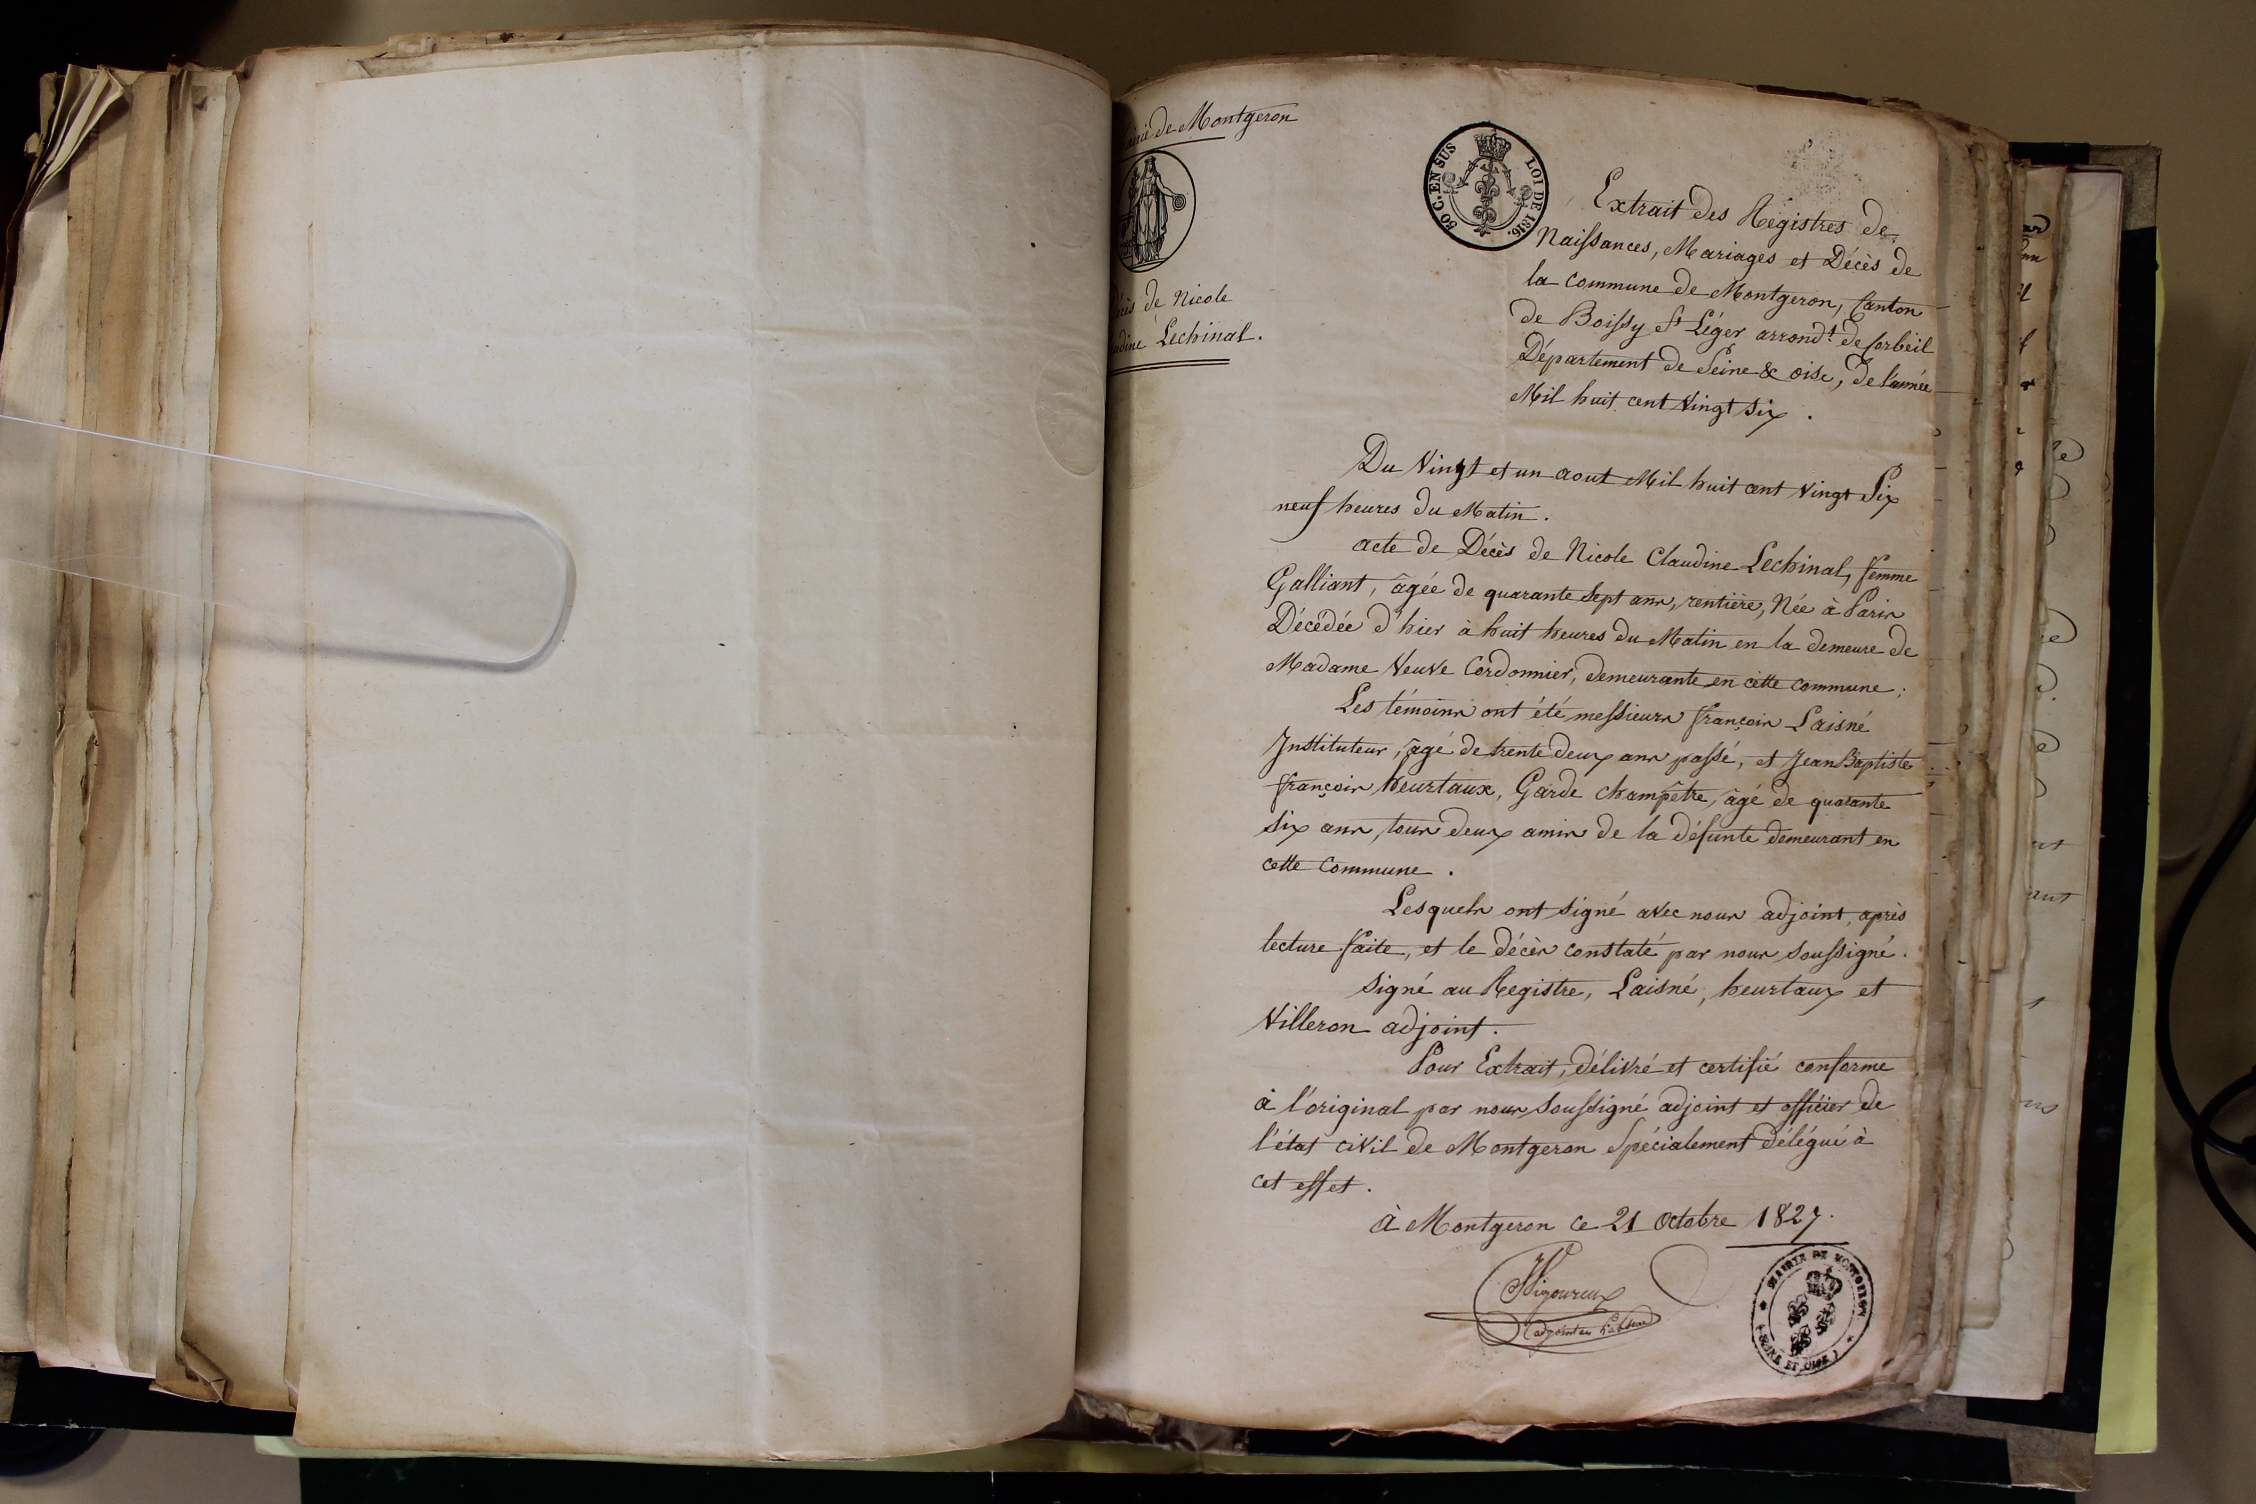 de Montgeron
de Nicole
Lechinal.
50 C. EN SUS
LOI DE 1816.
Extrait des Registres de
Naissances, Mariages et Décès de
la commune de Montgeron, Canton
de Boissy St Léger arrondt. de Corbeil
Département de Seine & oise, de l'année
Mil huit cent vingt six.
Du Vingt et un aout Mil huit cent vingt Six
neuf heures du Matin.
acte de Décès de Nicole Claudine Lechinal, femme
Galliant, âgée de quarante sept ans, rentière, Née à Paris
Décédée d'hier à huit heures du Matin en la demeure de
Madame Veuve Cordonnier, demeurante en cette commune;
Les témoins ont été messieurs françois Laisné
Instituteur, âgé de trente deux ans passé, et Jean Baptiste
françois heurtaux, Garde champêtre, âgé de quarante
six ans, tous deux amis de la défunte demeurant en
cette Commune.
Lesquels ont signé avec nous adjoint, après
lecture faite, et le décès constaté par nous soussigné.
signé au Registre, Laisné, heurtaux et
Villeron adjoint.
Pour Extrait, délivré et certifié conforme
à l'original par nous soussigné adjoint et officier de
l'état civil de Montgeron Spécialement délégué à
cet effet.
à Montgeron ce 21 Octobre 1827.
Vigoureux
MAIRIE DE MONTGERON
(SEINE ET OISE)